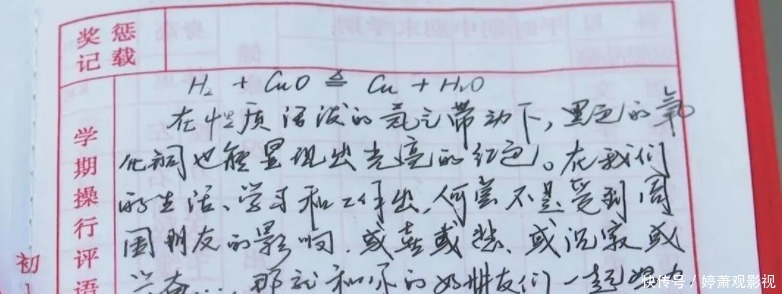 奖惩
记载
H₂ + CuO ≜ Cu + H₂O
在性质活泼的氢气带动下,黑色的氧
化铜也能显现出光亮的红色。在我们
的生活、学习和工作出,何尝不是受到周
围朋友的影响.或喜或悲、或沉寂或
兴奋... 那就和你的好朋友们一起
学期操行评语
初
快传号/婷萧观影视